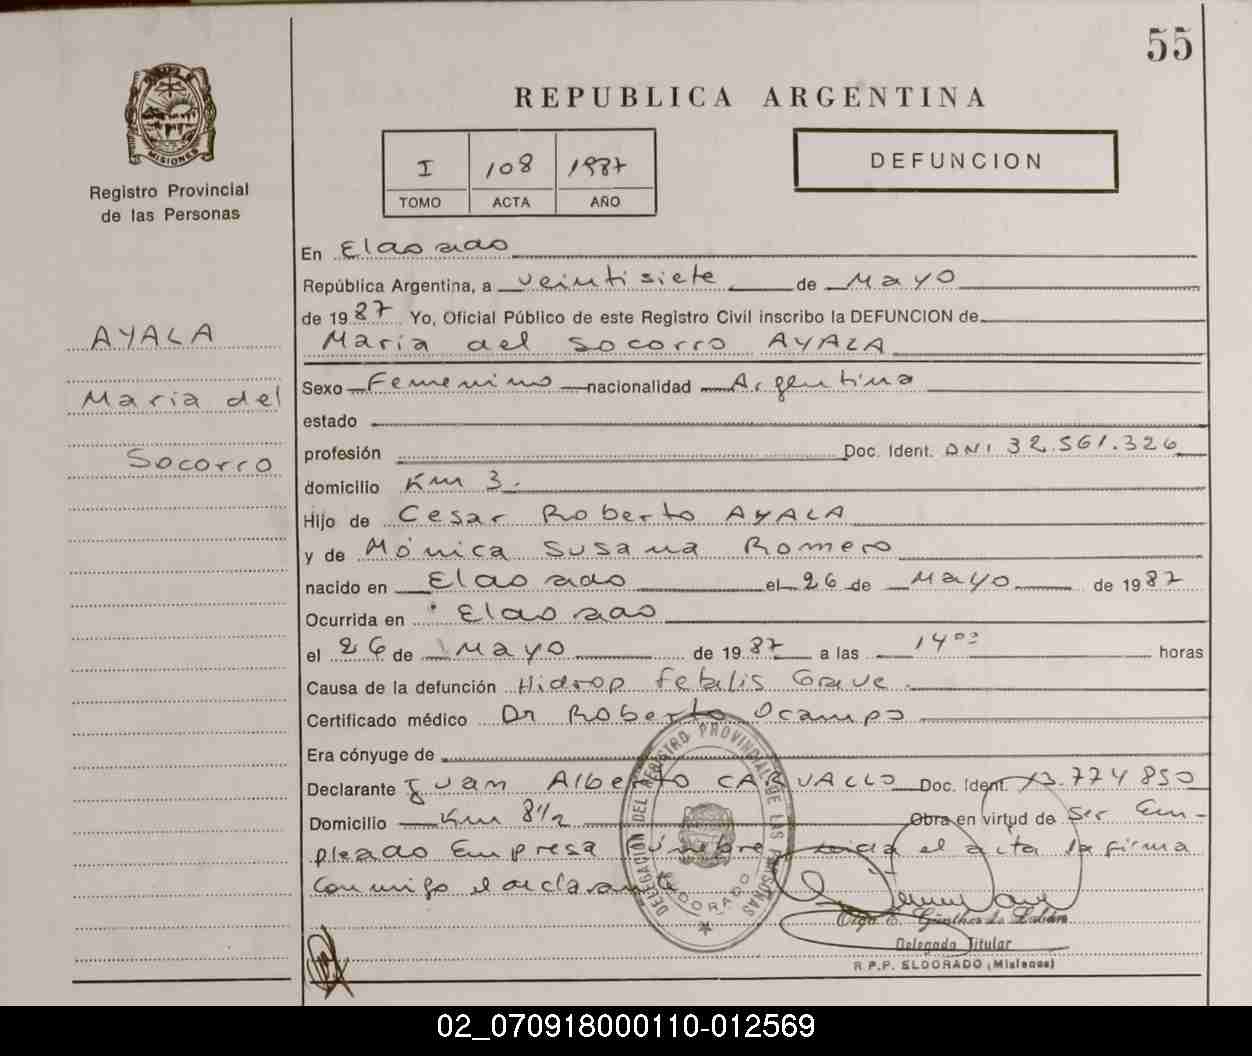 55
MISIONES
Registro Provincial
de las Personas
REPUBLICA ARGENTINA
I 108 1987
TOMO ACTA AÑO
DEFUNCION
AYALA
Maria del
Socorro
En Eldorado
República Argentina, a veintisiete de Mayo
de 1987 Yo, Oficial Público de este Registro Civil inscribo la DEFUNCION de
Maria del Socorro AYALA
Sexo Femenino nacionalidad Argentina
estado
profesión Doc. Ident. DNI 32.561.326
domicilio Km 3.
Hijo de Cesar Roberto AYALA
y de Mónica Susana Romero
nacido en Eldorado el 26 de Mayo de 1987
Ocurrida en Eldorado
el 26 de Mayo de 1987 a las 14 00 horas
Causa de la defunción Hidrop Fetalis Grave.
Certificado médico Dr Roberto Ocampo
Era cónyuge de
Declarante Juan Alberto CARVALLO Doc. Ident. 13.774 850
Domicilio Km 8 1/2 Obra en virtud de Ser Em-
pleado Empresa Funebre leida el acta la firma
Conmigo el declarante
DELEGACIÓN DEL REGISTRO PROVINCIAL DE LAS PERSONAS
ELDORADO
Olga E. Günther de
Delegada Titular
R.P.P. ELDORADO (Misiones)
02_070918000110-012569